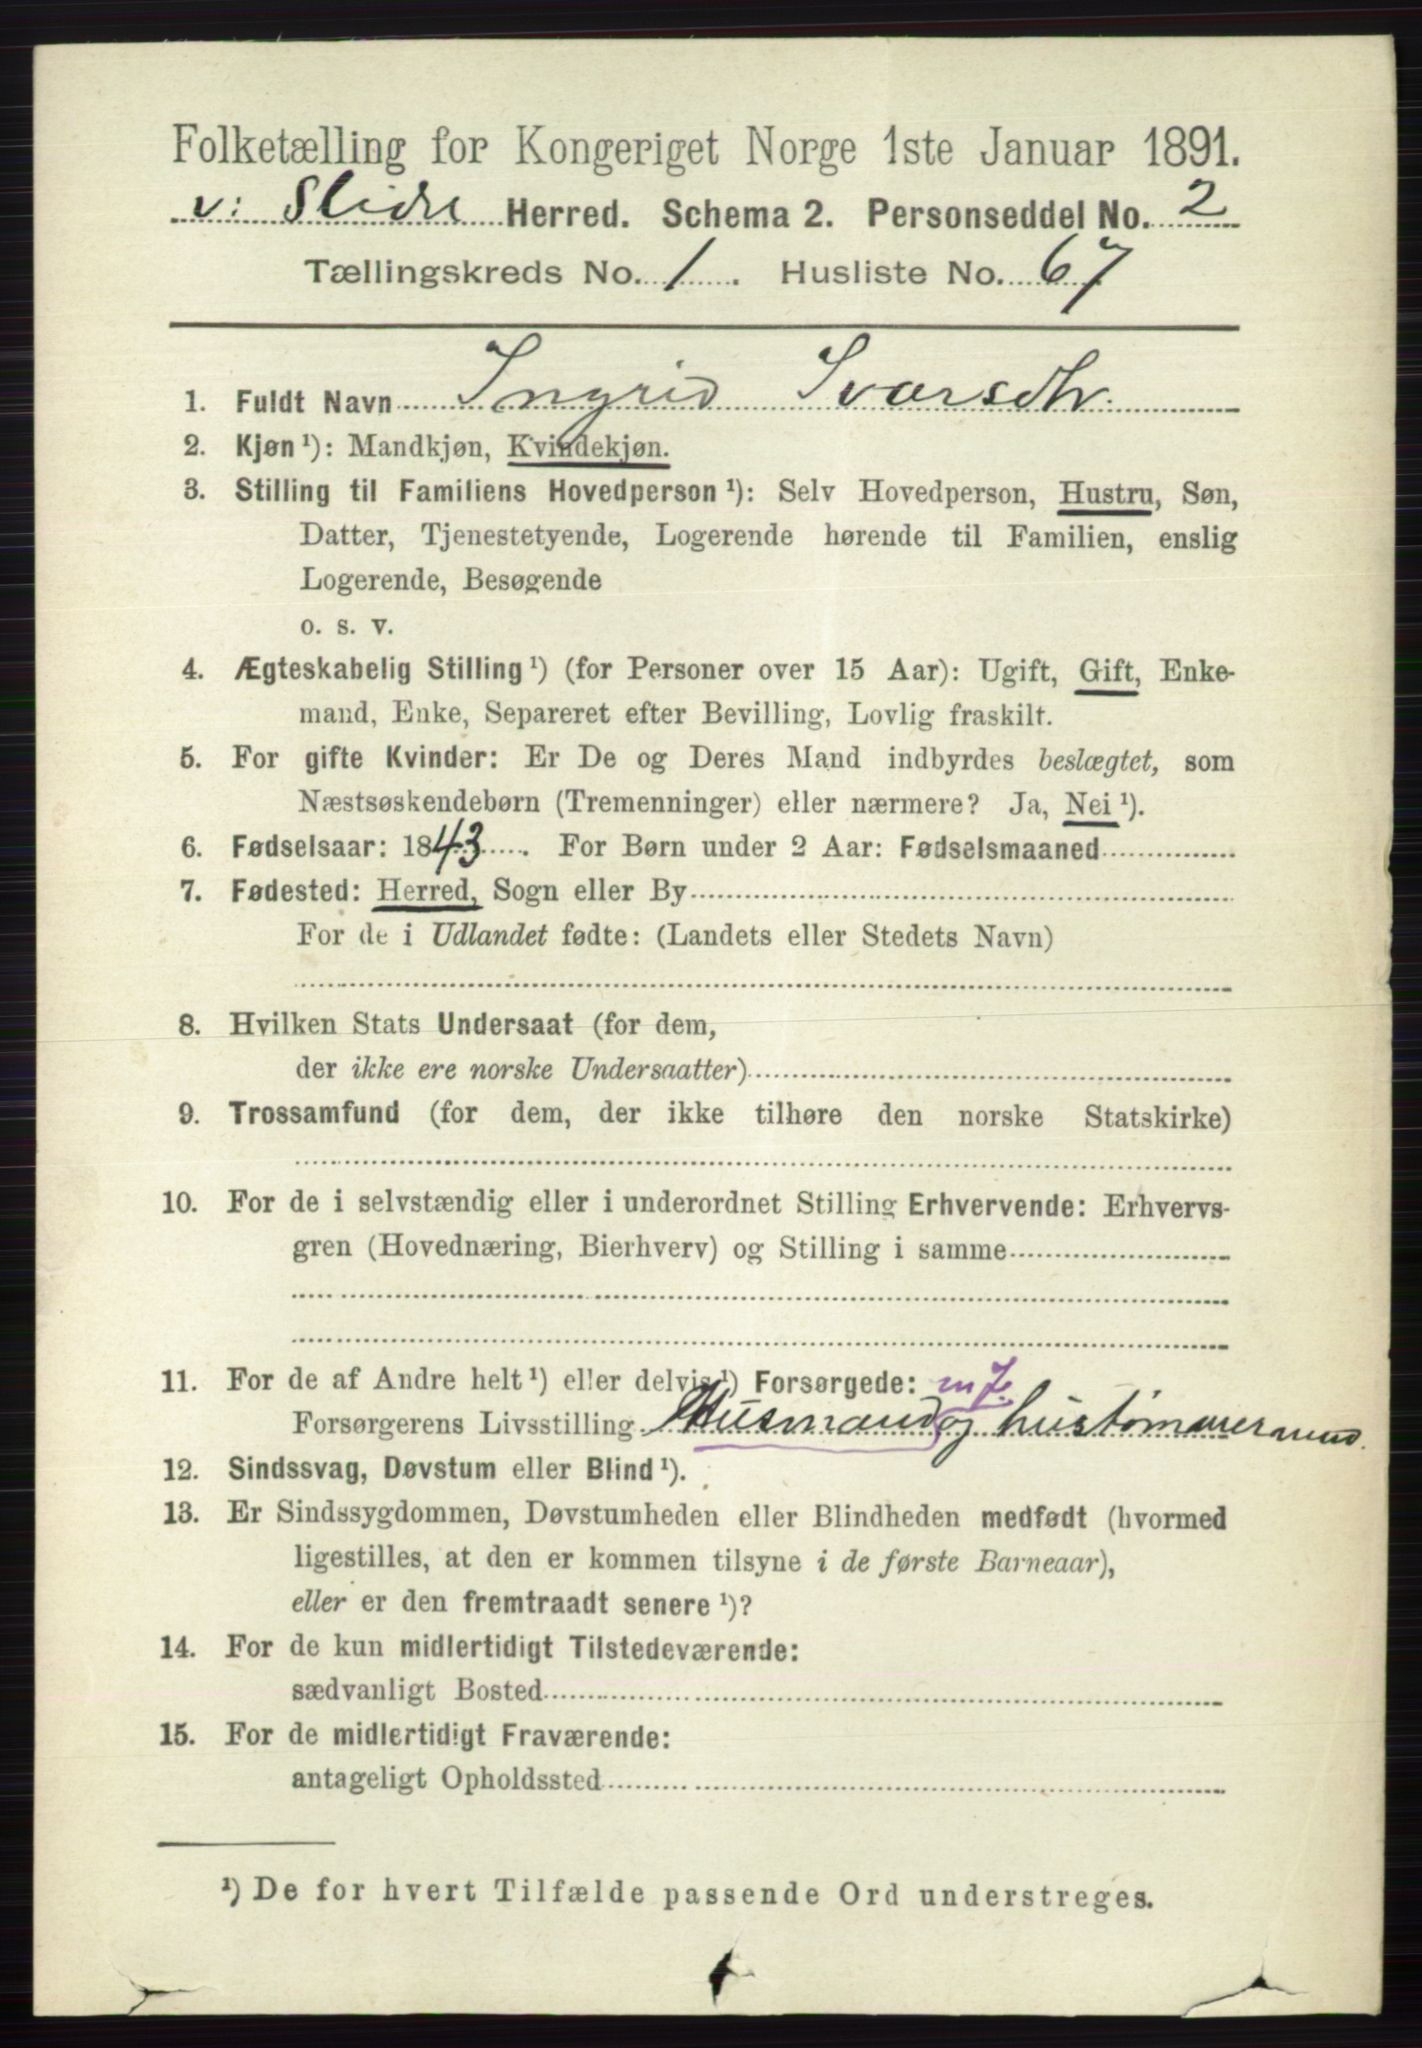 Folketælling for Kongeriget Norge 1ste Januar 1891.
v: Slidre Herred. Schema 2. Personseddel No. 2
Tællingskreds No. 1. Husliste No. 67
1. Fuldt Navn Ingrid Ivarsdtr.
2. Kjøn ¹): Mandkjøn, Kvindekjøn.
3. Stilling til Familiens Hovedperson ¹): Selv Hovedperson, Hustru, Søn,
Datter, Tjenestetyende, Logerende hørende til Familien, enslig
Logerende, Besøgende
o. s. v.
4. Ægteskabelig Stilling ¹) (for Personer over 15 Aar): Ugift, Gift, Enke-
mand, Enke, Separeret efter Bevilling, Lovlig fraskilt.
5. For gifte Kvinder: Er De og Deres Mand indbyrdes beslægtet, som
Næstsøskendebørn (Tremenninger) eller nærmere? Ja, Nei ¹).
6. Fødselsaar: 1843. For Børn under 2 Aar: Fødselsmaaned
7. Fødested: Herred, Sogn eller By
For de i Udlandet fødte: (Landets eller Stedets Navn)
8. Hvilken Stats Undersaat (for dem,
der ikke ere norske Undersaatter)
9. Trossamfund (for dem, der ikke tilhøre den norske Statskirke)
10. For de i selvstændig eller i underordnet Stilling Erhvervende: Erhvervs-
gren (Hovednæring, Bierhverv) og Stilling i samme
11. For de af Andre helt ¹) eller delvis ¹) Forsørgede: m J.
Forsørgerens Livsstilling Husmand og hustømmermand.
12. Sindssvag, Døvstum eller Blind ¹).
13. Er Sindssygdommen, Døvstumheden eller Blindheden medfødt (hvormed
ligestilles, at den er kommen tilsyne i de første Barneaar),
eller er den fremtraadt senere ¹)?
14. For de kun midlertidigt Tilstedeværende:
sædvanligt Bosted
15. For de midlertidigt Fraværende:
antageligt Opholdssted
¹) De for hvert Tilfælde passende Ord understreges.